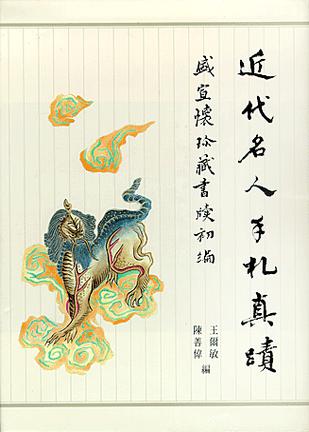 近代名人手札真蹟
盛宣懷珍藏書牘初編
王爾敏
陳善偉
編